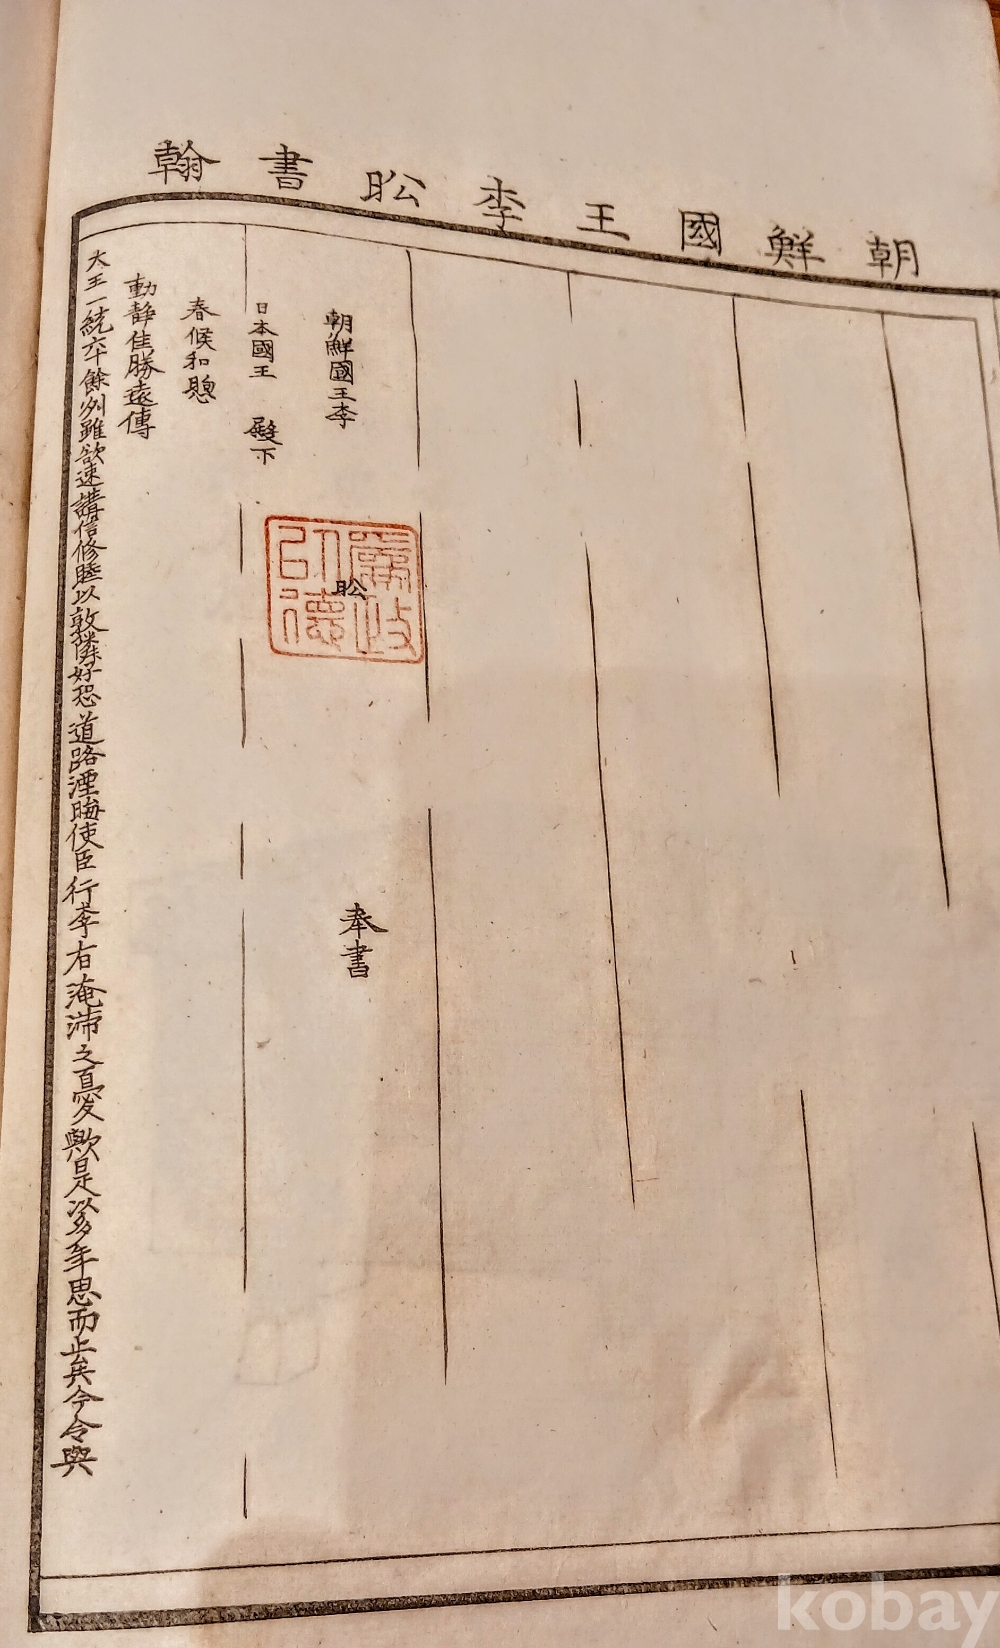 朝鮮國王李昖書翰
朝鮮國王李 昖 奉書
日本國王 殿下
春候和煦
動靜佳勝遠傳
大王一統六十餘州雖欲速講信修睦以敦隣好恐道路湮晦使臣行李有淹滯之憂歟是以多年思而止矣今令與
kobay